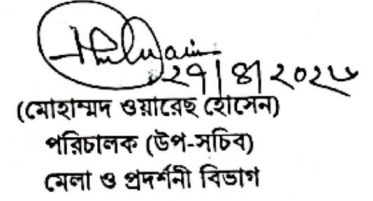 ২৭|৪|২০২৬
(মোহাম্মদ ওয়ারেছ হোসেন)
পরিচালক (উপ-সচিব)
মেলা ও প্রদর্শনী বিভাগ